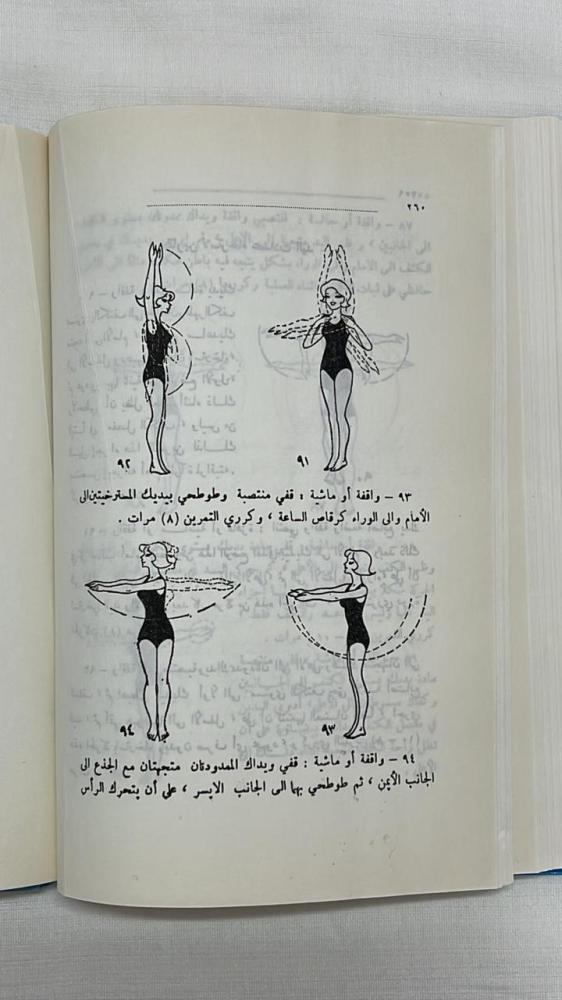 ٢٦٠
٩٢
٩١
٩٣ – واقفة أو ماشية : قفي منتصبة وطوطحي بيديك المسترخيتين الى
الأمام والى الوراء كرقاص الساعة ، وكرري التمرين (٨) مرات .
٩٤
٩٣
٩٤ – واقفة أو ماشية : قفي ويداك الممدودتان متجهتان مع الجذع الى
الجانب الأيمن ، ثم طوطحي بها الى الجانب الايسر ، على أن يتحرك الرأس